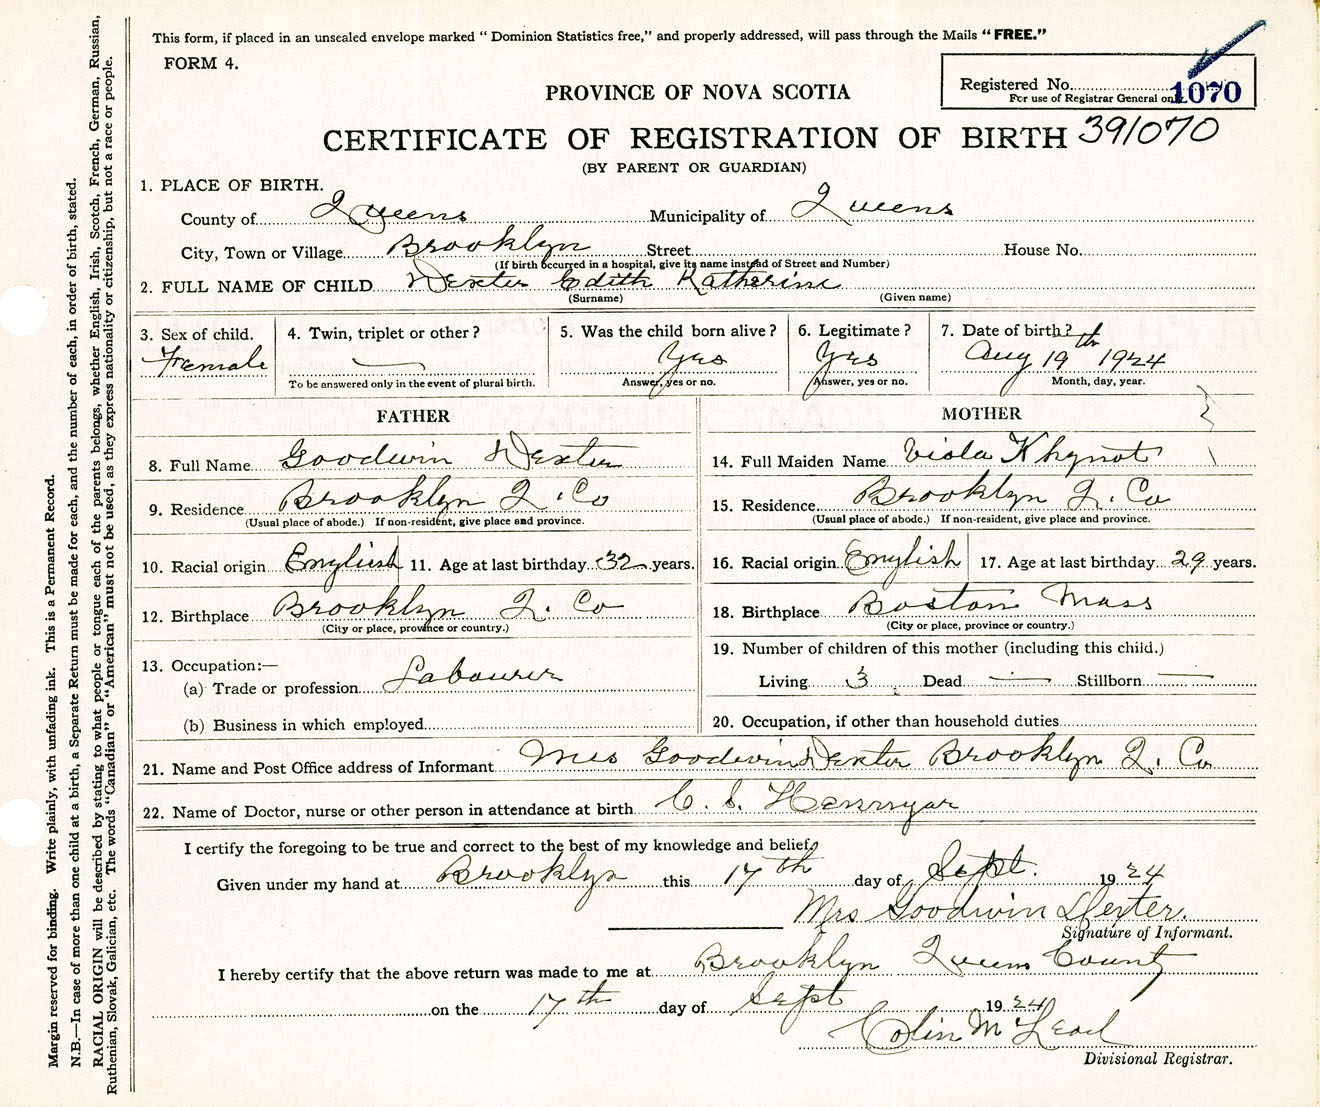 This form, if placed in an unsealed envelope marked “ Dominion Statistics free,” and properly addressed, will pass through the Mails “ FREE.”
FORM 4.
Registered No. 1070
For use of Registrar General only
PROVINCE OF NOVA SCOTIA
CERTIFICATE OF REGISTRATION OF BIRTH 391070
(BY PARENT OR GUARDIAN)
1. PLACE OF BIRTH.
County of Queens Municipality of Queens
City, Town or Village Brooklyn Street House No.
(If birth occurred in a hospital, give its name instead of Street and Number)
2. FULL NAME OF CHILD Dexter Edith Katherine
(Surname) (Given name)
3. Sex of child. 4. Twin, triplet or other ? 5. Was the child born alive ? 6. Legitimate ? 7. Date of birth ?
Female — Yes Yes Aug 19th 1924
To be answered only in the event of plural birth. Answer, yes or no. Answer, yes or no. Month, day, year.
FATHER MOTHER
8. Full Name Goodwin Dexter 14. Full Maiden Name Viola Khynot
9. Residence Brooklyn Q. Co 15. Residence Brooklyn Q. Co
(Usual place of abode.) If non-resident, give place and province. (Usual place of abode.) If non-resident, give place and province.
10. Racial origin English 11. Age at last birthday 32 years. 16. Racial origin English 17. Age at last birthday 29 years.
12. Birthplace Brooklyn Q. Co 18. Birthplace Boston Mass
(City or place, province or country.) (City or place, province or country.)
13. Occupation:— 19. Number of children of this mother (including this child.)
(a) Trade or profession Labourer Living 3 Dead — Stillborn —
(b) Business in which employed 20. Occupation, if other than household duties
21. Name and Post Office address of Informant Mrs Goodwin Dexter Brooklyn Q. Co
22. Name of Doctor, nurse or other person in attendance at birth C. S. Hennigar
I certify the foregoing to be true and correct to the best of my knowledge and belief,
Given under my hand at Brooklyn this 17th day of Sept. 1924
Mrs Goodwin Dexter.
Signature of Informant.
I hereby certify that the above return was made to me at Brooklyn Queens County
on the 17th day of Sept 1924
Colin McLeod
Divisional Registrar.
Margin reserved for binding. Write plainly, with unfading ink. This is a Permanent Record.
N.B.—In case of more than one child at a birth, a Separate Return must be made for each, and the number of each, in order of birth, stated.
RACIAL ORIGIN will be described by stating to what people or tongue each of the parents belongs, whether English, Irish, Scotch, French, German, Russian,
Ruthenian, Slovak, Galician, etc. The words “Canadian” or “American” must not be used, as they express nationality or citizenship, but not a race or people.